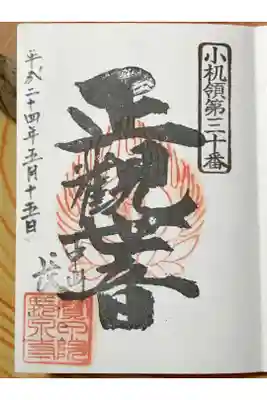 小机領第三十番
正觀音
平成二十四年五月十五日